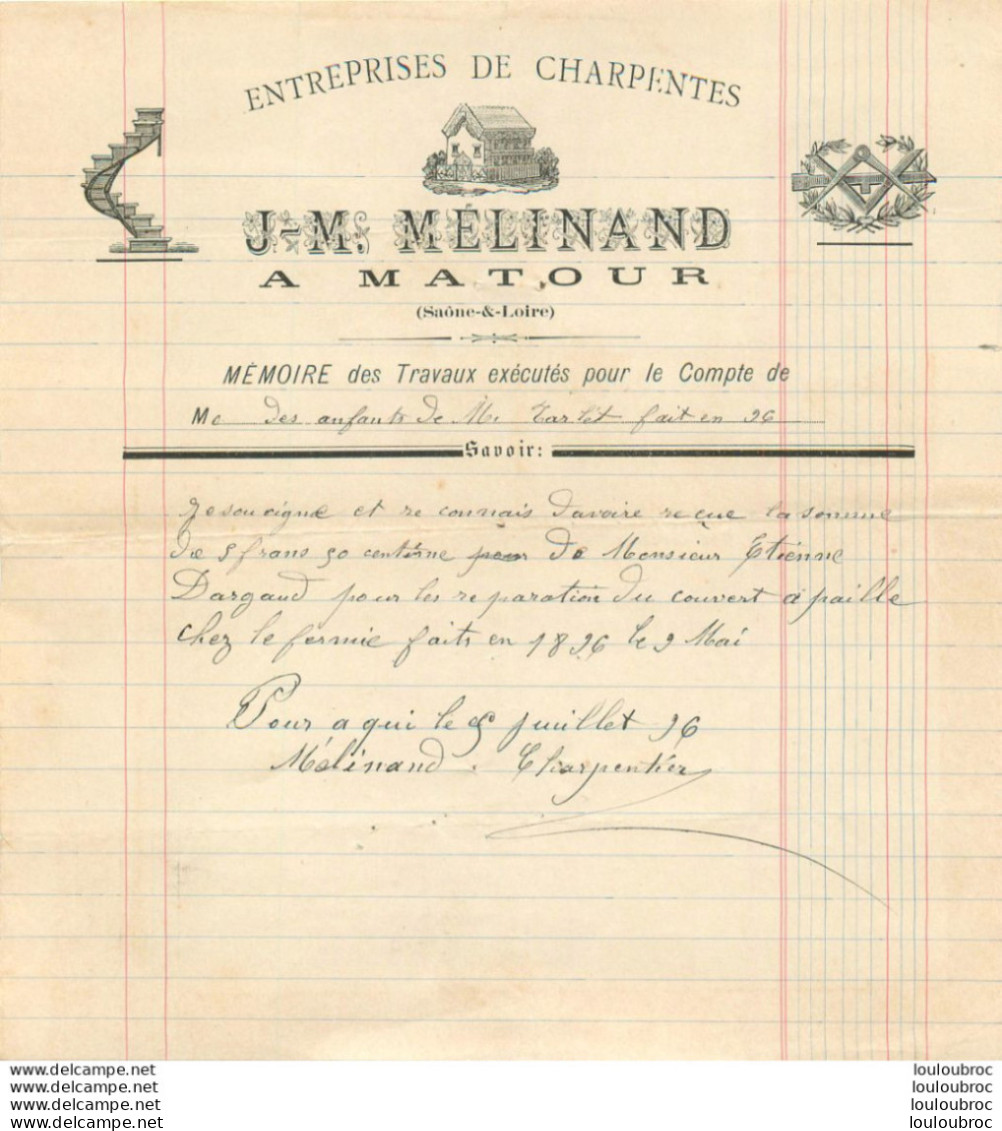 ENTREPRISES DE CHARPENTES
J-M. MÉLINAND
A MATOUR
(Saône-&-Loire)
MÉMOIRE des Travaux exécutés pour le Compte de
Me des anfants de M. fait en 96
Savoir:
Je soucigne et re connais davoire reçue la somme
de frans 50 centime de Monsieur Etiénne
Dargaud pour les reparation du couvert à paille
chez le fermie faits en 1896 le 2 Mai
Pour a qui le juillet 96
Mélinand. Charpentier
www.delcampe.net
www.delcampe.net
www.delcampe.net
www.delcampe.net
louloubroc
louloubroc
louloubroc
louloubroc